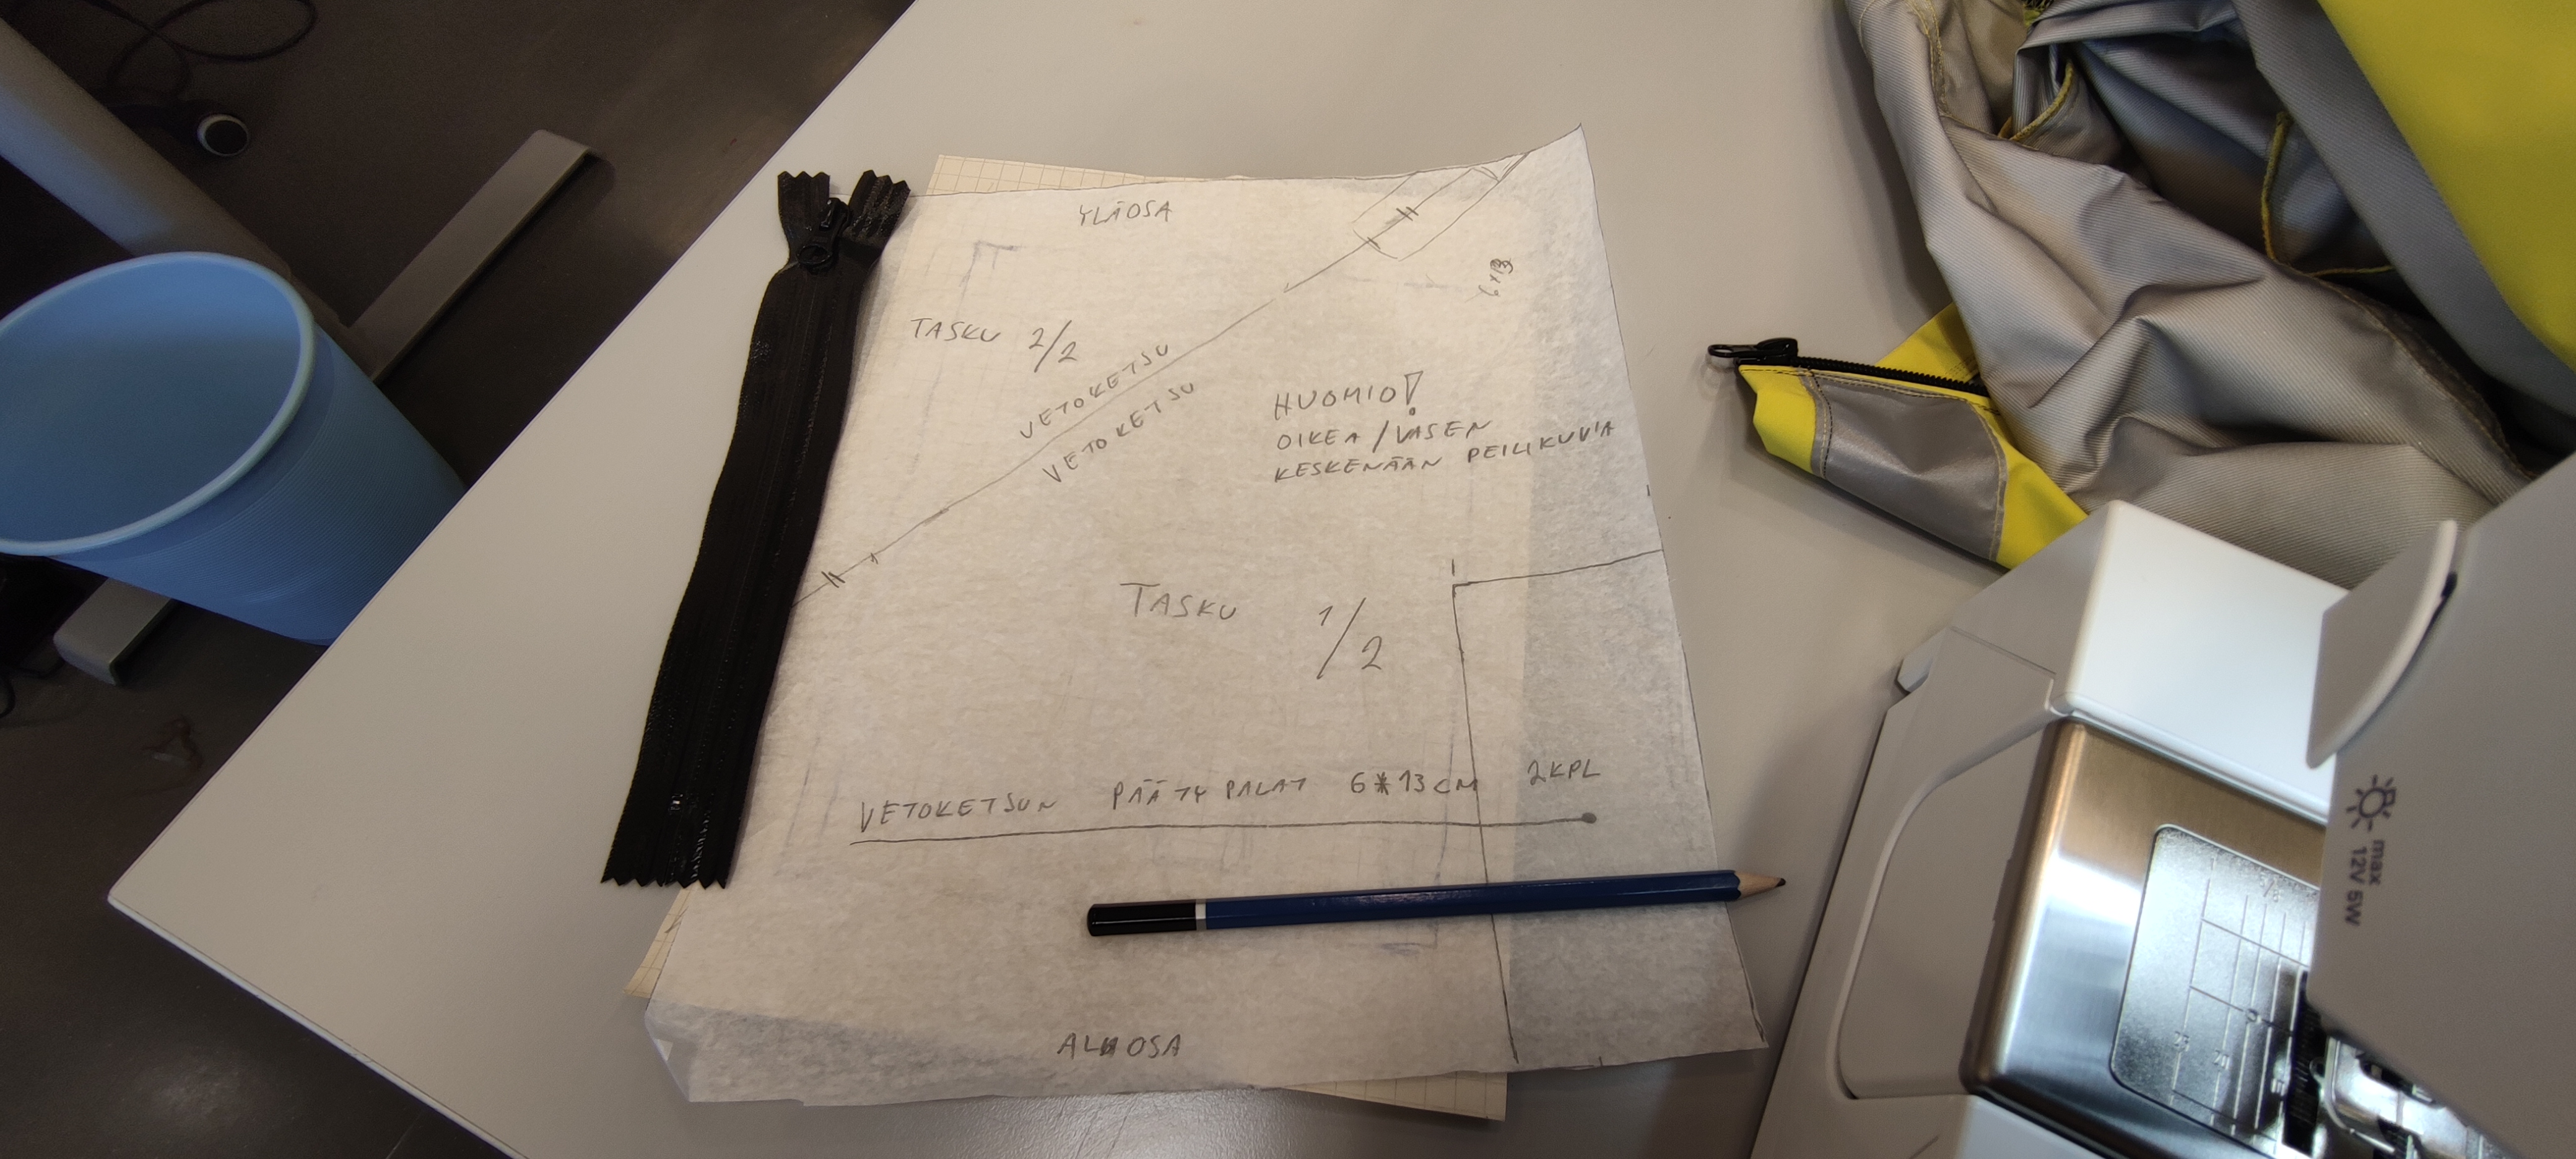 YLÄOSA
6*13
TASKU 2/2
VETOKETJU
VETOKETJU
HUOMIO!
OIKEA/VASEN
KESKENÄÄN PEILIKUVIA
TASKU 1/2
VETOKETJUN PÄÄTYPALAT 6*13CM 2KPL
ALAOSA
max
12V 5W